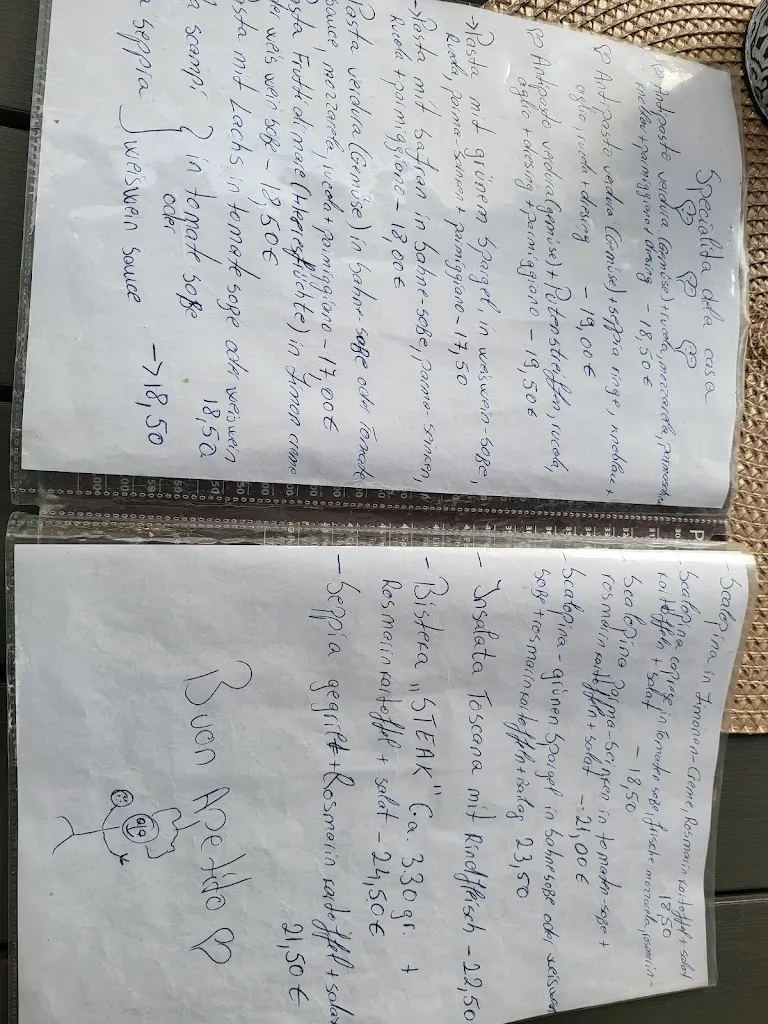 Specialita della casa
Antipasto verdura (Gemüse) + rucola, mozzarela, parmaschinken
knoblau + parmiggiano + dresing - 18,50€
Antipasto verdura (Gemüse) + seppia ringe, knoblau +
oglio, rucola + dresing - 19,00€
Antipasto verdura (gemüse) + Putenstreiffen, rucola,
oglio + dresing + parmiggiano - 19,50€
→ Pasta mit grünem Spargel, in weiswein-soße,
Rucola, parma-schinken + parmiggiano - 17,50
→ Pasta mit Safran in Sahne-soße, parma-schinken,
Rucola + parmiggiano - 18,00€
Pasta verdura (Gemüse) in Sahne-soße oder Tomate
sauce, mozzarela, rucola + parmiggiano - 17,00€
Pasta Frutti di mare (Meeresfrüchte) in Limon creme
oder weis wein soße - 18,50€
Pasta mit Lachs in tomate soße oder weiswein
18,50
scampi } in tomate soße
oder
seppia } weiswein sauce → 18,50
- Scalopina in Limonen-Creme, Rosmarin kartoffel + salat
18,50
- Scalopina caprese in Tomaten soße, frische mozzarela, rosmarin-
kartoffeln + salat - 18,50
- Scalopina Parma-Schinken in tomaten-soße +
rosmarin kartoffeln + salat - 21,00€
- Scalopina - grünen Spargel in Sahnesoße oder weiswein
soße + rosmarin kartoffeln + Beilag 23,50
- Insalata Toscana mit Rindfleisch - 22,50
- Bisteka "STEAK" Ca. 330 gr. +
Rosmarin kartoffel + salat - 24,50€
- Seppia gegrillt + Rosmarin kartoffel + salat
21,50€
Buon Apetido ♡